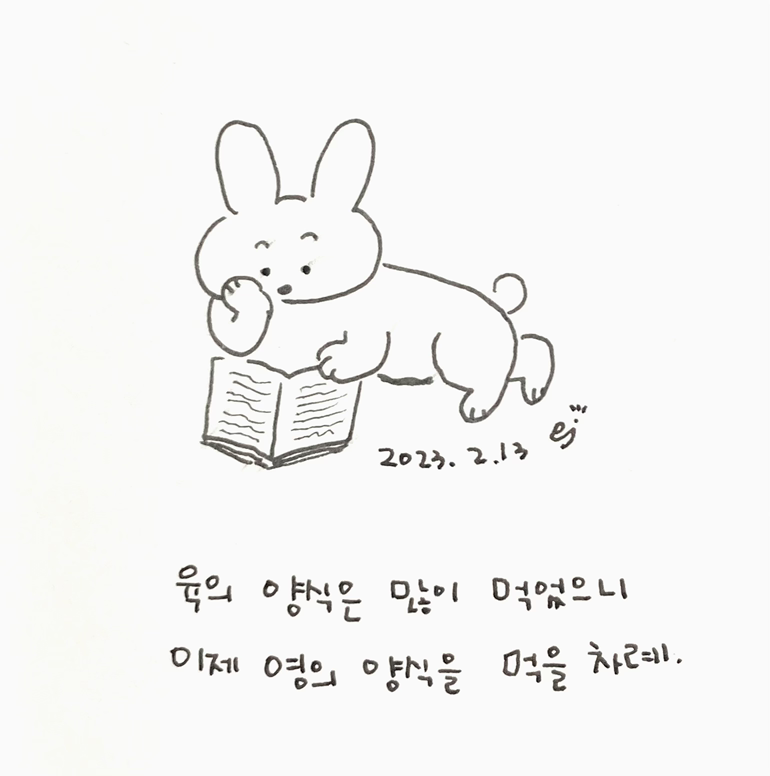 2023. 2.13 ej
육의 양식은 많이 먹었으니
이제 영의 양식을 먹을 차례.